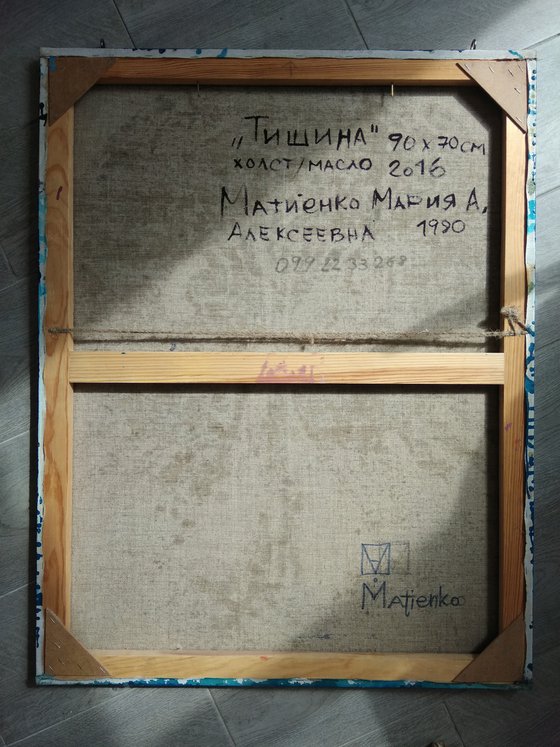 „Тишина" 90 x 70 см
холст/масло 2016
Матіенко Мария А.
Алексеевна 1990
099 22 33 268
Matienko